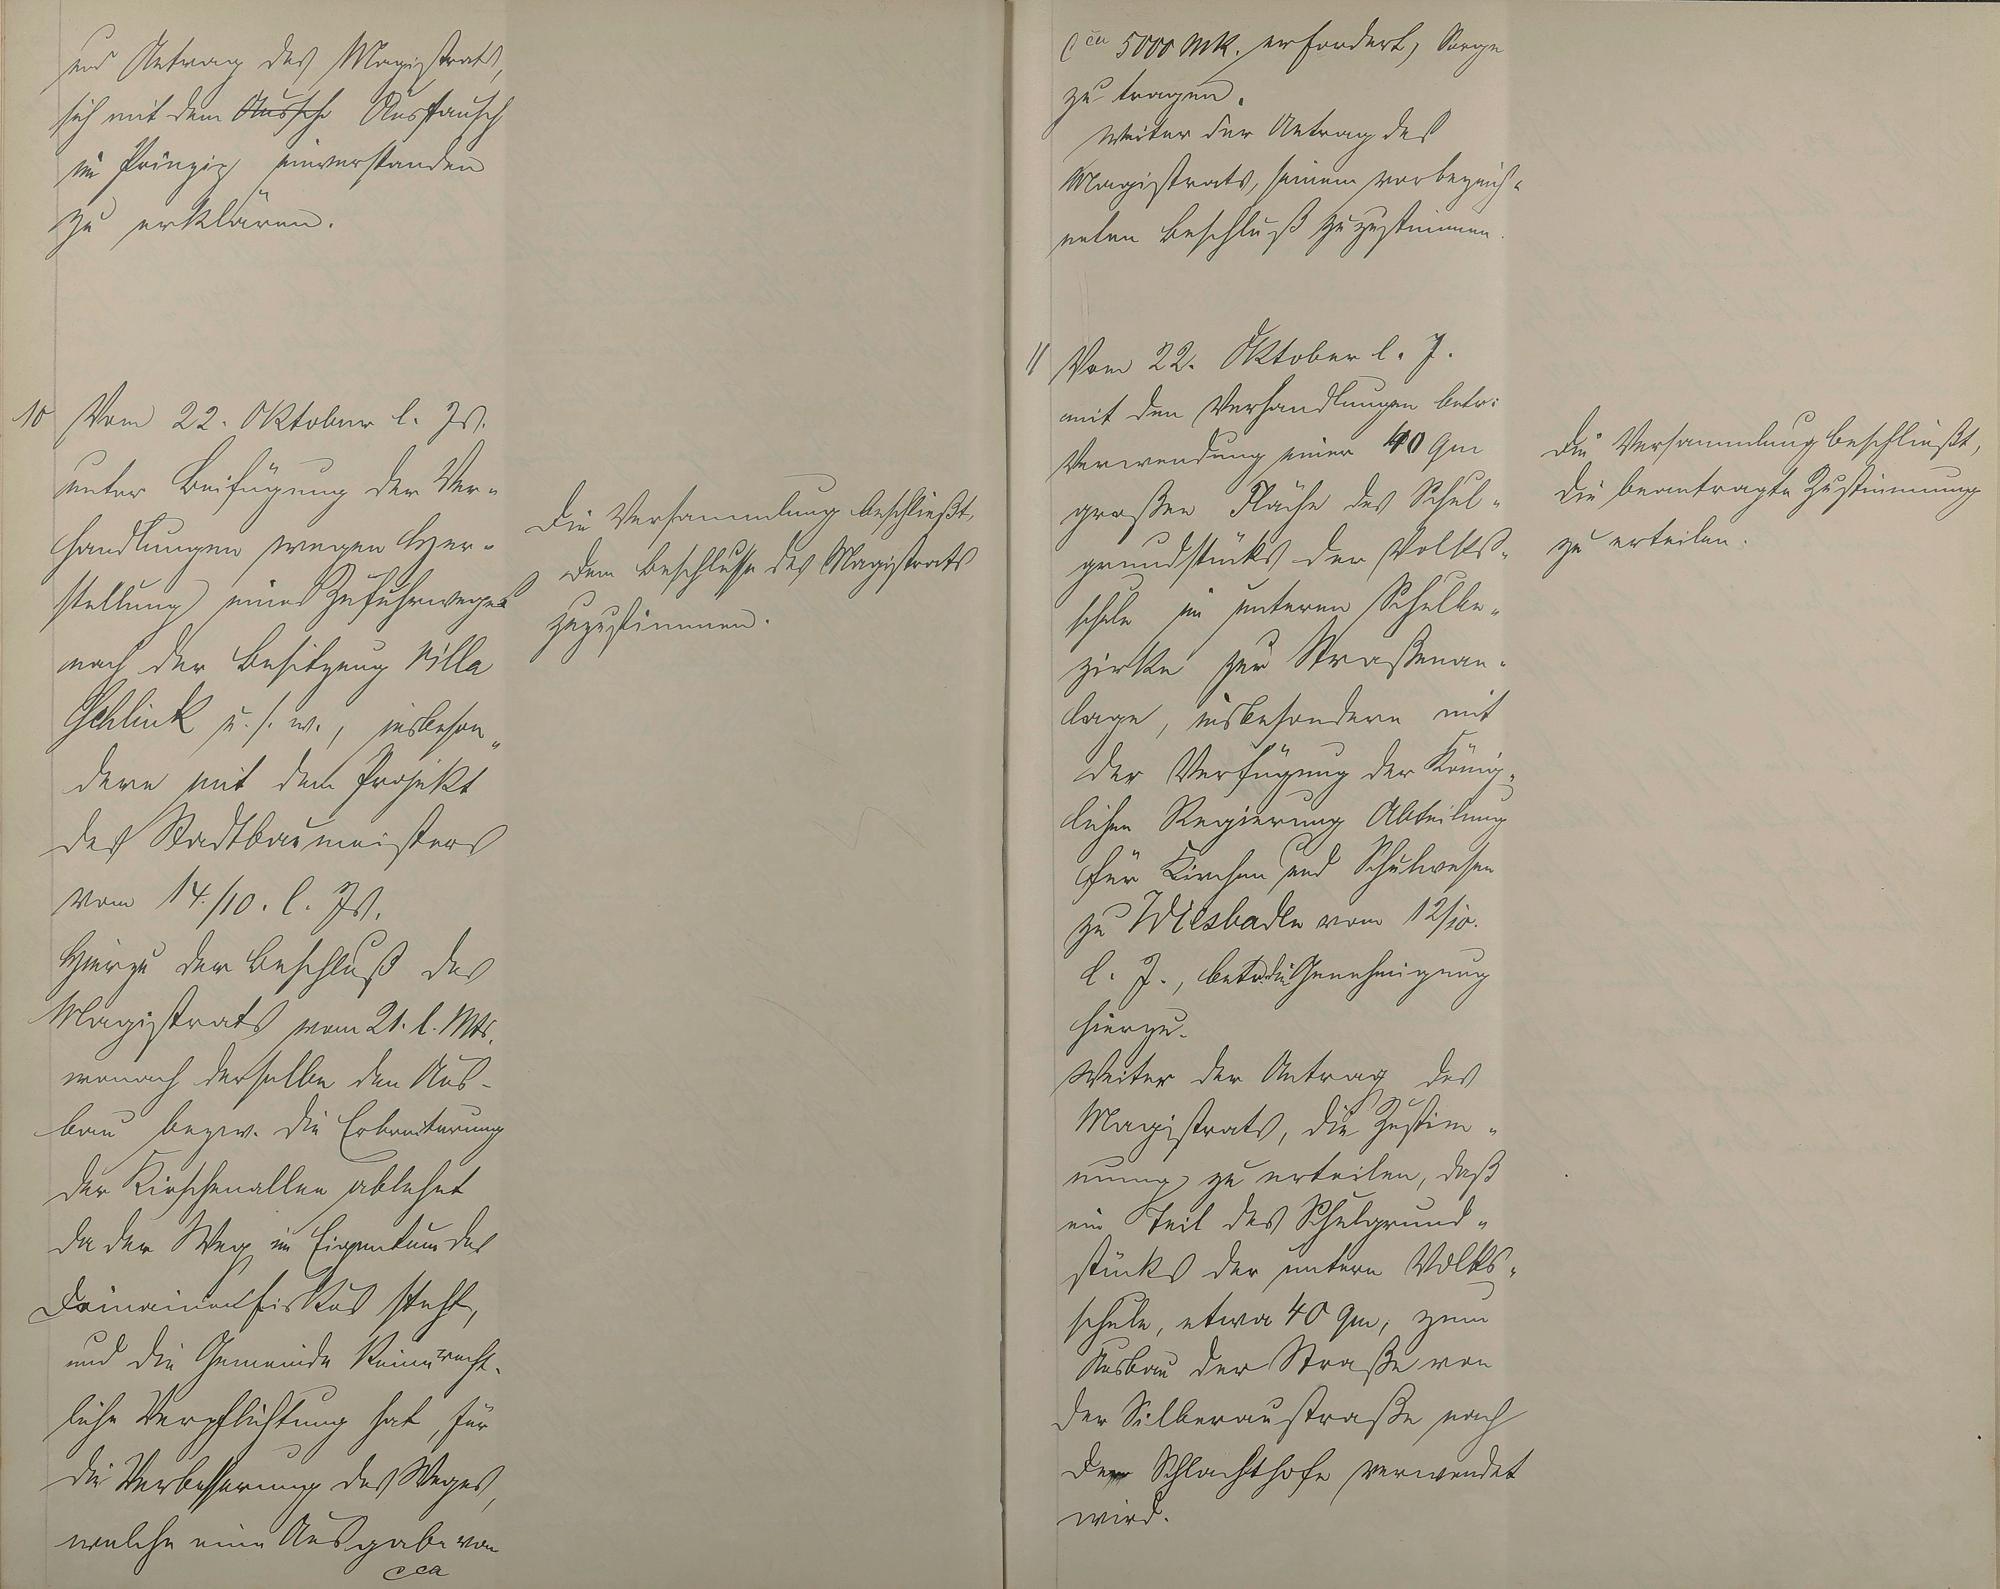 und Antrag des Magistrats,
sich mit dem Aussche Austausch
im Prinzip einverstanden
zu erklären.
10 Vom 22. Oktober l. Js.
unter Beifügung der Ver-
handlungen wegen Her-
stellung eines Zufuhrweges
nach der Besitzung Villa
Schlink u. s. w., insbeson„
dere mit dem Projekt
des Stadtbaumeisters
vom 14./10. l. Js.
Hierzu der Beschluß des
Magistrats vom 21. l. Mts.
wonach derselbe den Aus-
bau bezw. die Erbreiterung
der Kirschenallee ablehnt
da der Weg im Eigentum des
Domainenfiskus steht,
und die Gemeinde keine recht-
liche Verpflichtung hat, für
die Verbesserung des Weges,
welche eine Ausgabe von
cca
Die Versammlung beschließt,
dem Beschlusse des Magistrats
zuzustimmen.
(ca 5000 Mk. erfordert, Sorge
zu tragen.
Weiter der Antrag des
Magistrats, seinem vorbezeich-
neten Beschluß zuzustimmen.
11 Vom 22. Oktober l. J.
mit den Verhandlungen betr:
Verwendung einer 40 qm
großen Fläche des Schul-
grundstücks der Volks-
schule im unteren Schulbe-
zirke zur Straßenan-
lage, insbesondere mit
der Verfügung der König-
lichen Regierung Abteilung
für Kirchen und Schulwesen
zu Wiesbaden vom 12/10.
l. J., betr. die Genehmigung
hierzu.
Weiter der Antrag des
Magistrats, die Zustim-
mung zu erteilen, daß
ein Teil des Schulgrund-
stücks der untern Volks-
schule, etwa 40 qm, zum
Ausbau der Straße von
der Silberaustraße nach
dem Schlachthofe verwendet
wird.
Die Versammlung beschließt,
die beantragte Zustimmung
zu erteilen.